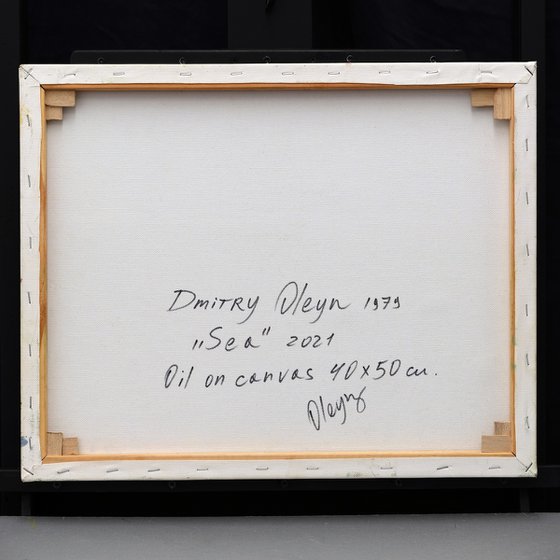 Dmitry Oleyn 1979
„Sea" 2021
Oil on canvas 40x50 cm.
Oleyn